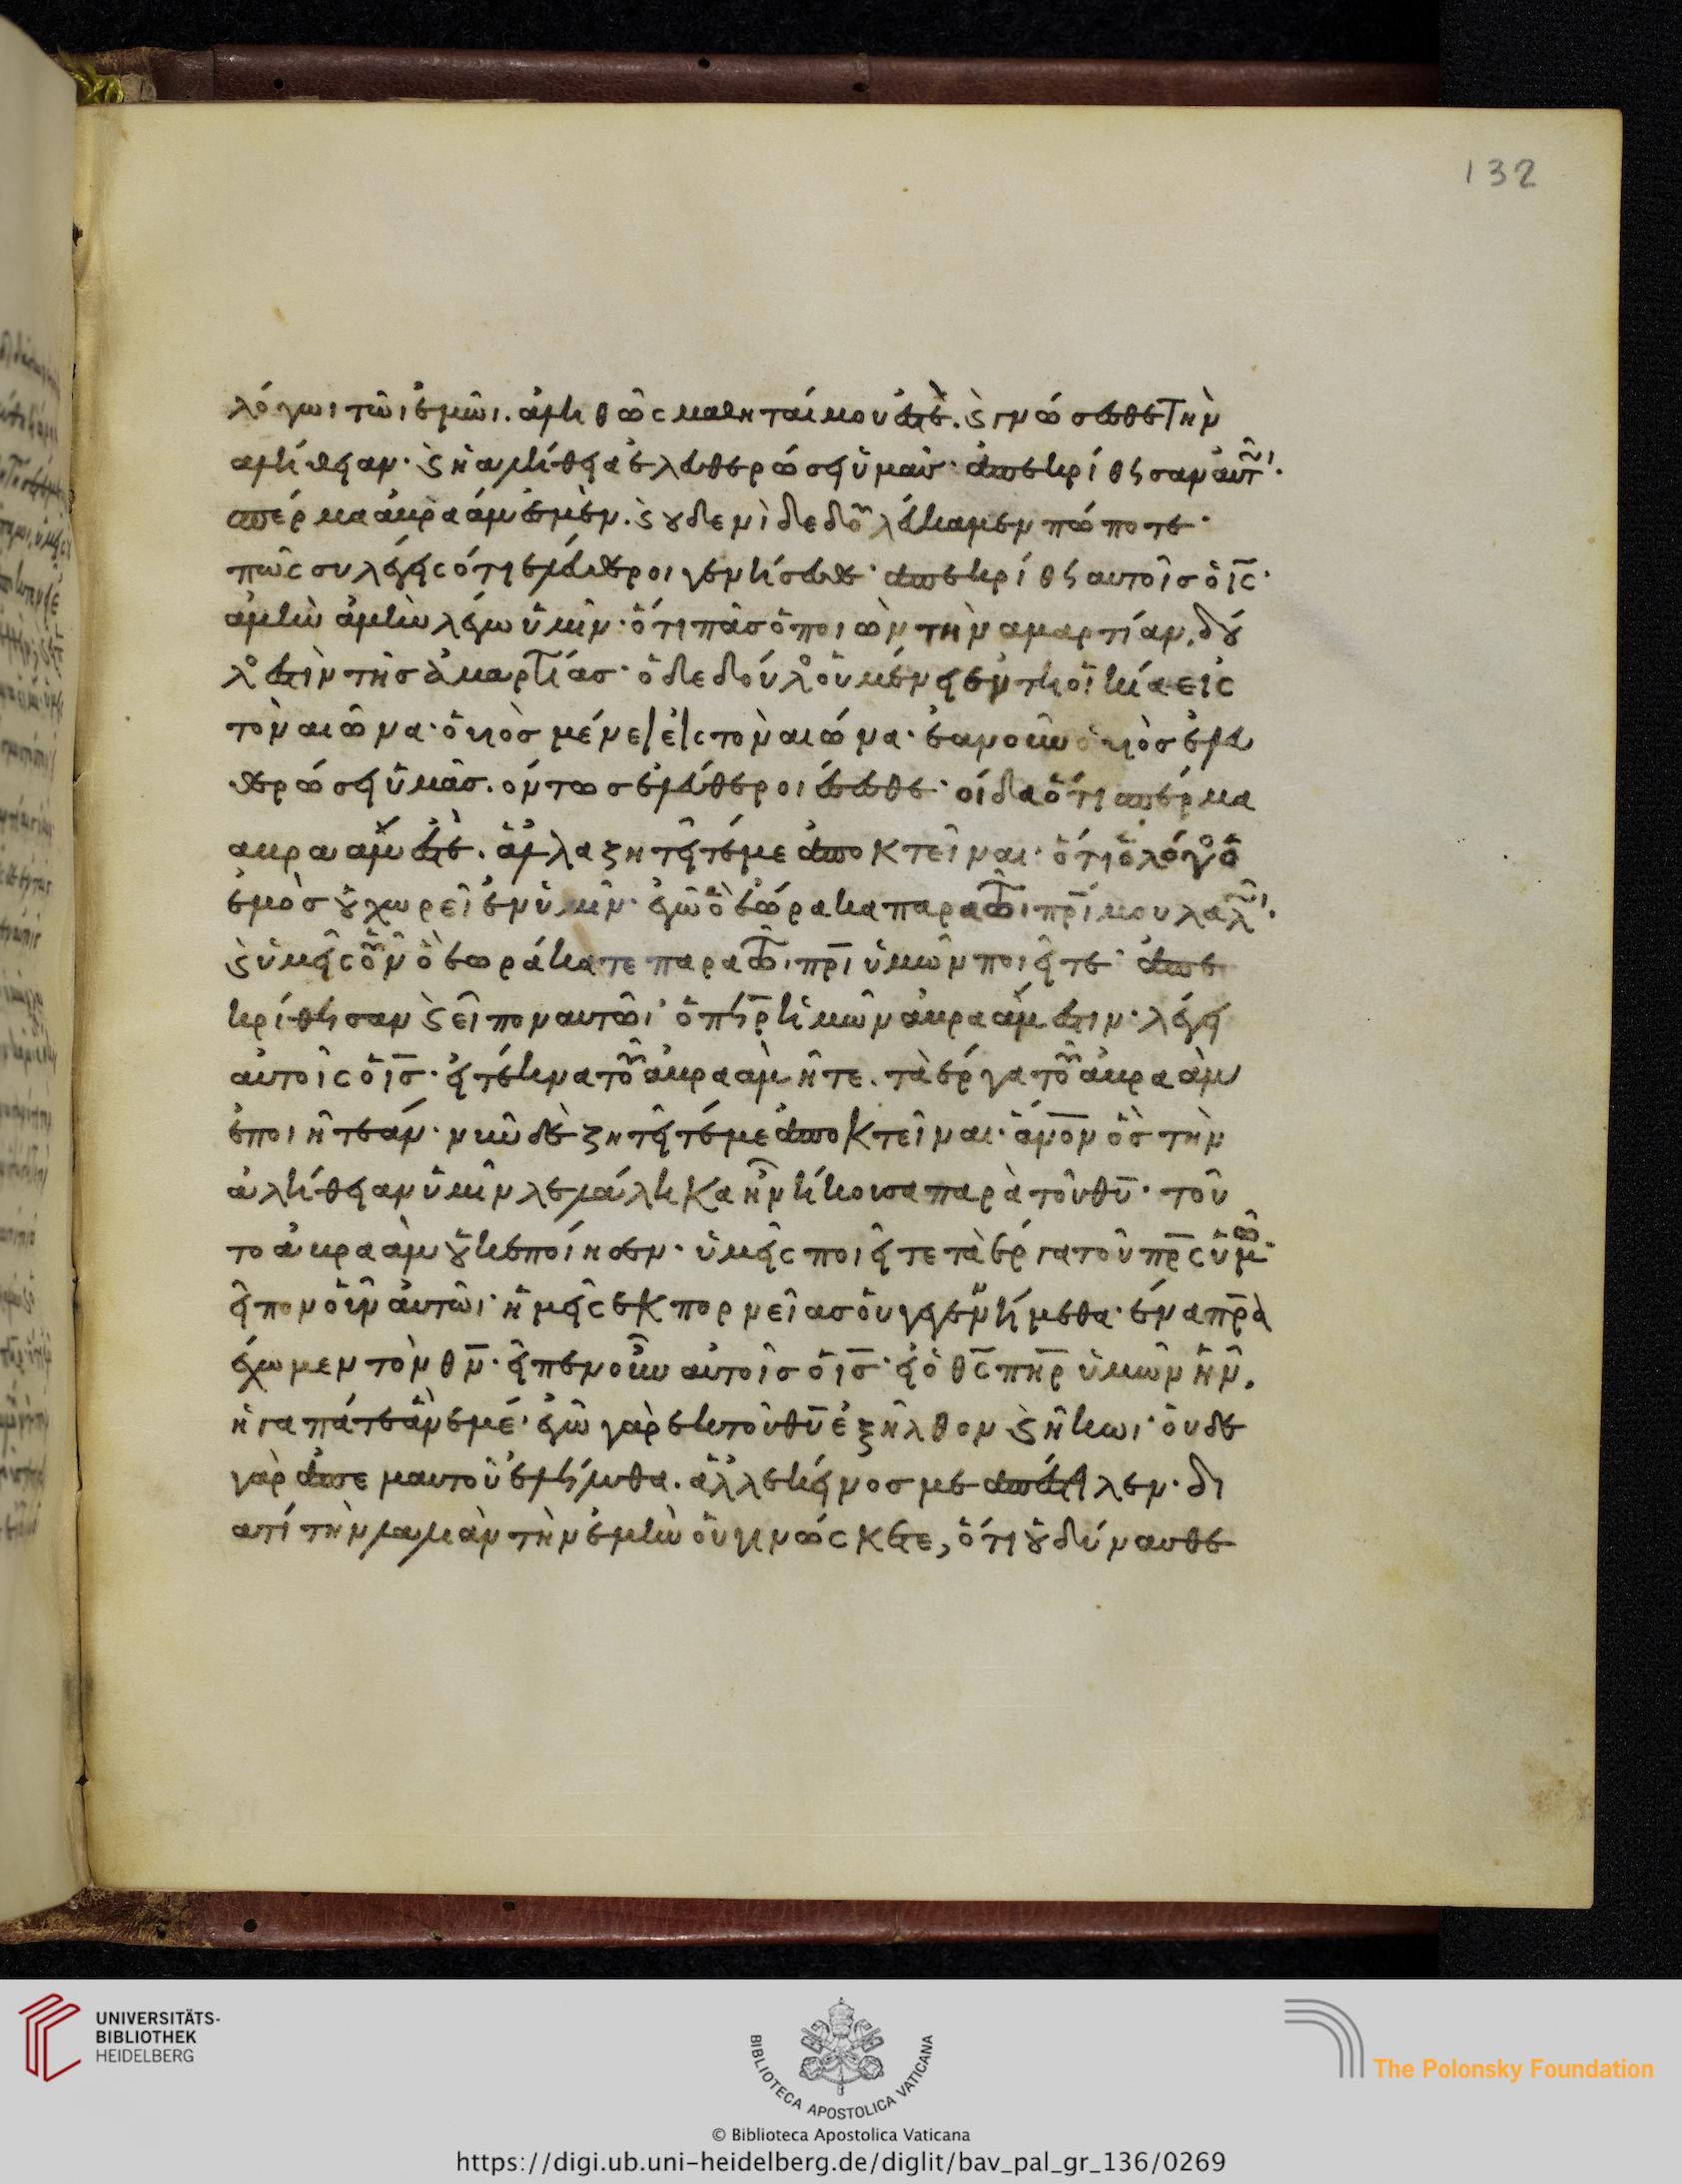 132
λόγωι τῶι ἐμῶι. ἀληθῶς μαθηταί μου ἐστὲ. ϗ γνώσεσθε τὴν
αλήθειαν· ϗ ἡ αλήθεια ἐλευθερώσει ὑμᾶς· ἀπεκρίθησαν ἀυτῶι·
σπέρμα ἀβραάμ ἐσμὲν. ϗ ουδενὶ δεδουλέυκαμεν πώποτε·
πῶς συ λέγεις ότι ελέυθεροι γενήσεσθε· ἀπεκρίθη αυτοῖς ὁ ις̅·
ἀμὴν ἀμὴν λέγω ὑμῖν· ὅτι πᾶς ὁ ποιὼν τὴν αμαρτίαν, δού
λός ἐστὶν τῆς ἁμαρτίας· ὁ δε δούλος οὐ μένει ἐν τῆ οἰκία εἰς
τὸν αιῶνα· ὁ υιὸς μένει εἰς τὸν αιώνα· ἐαν οὖν ὁ υιὸς ἐλευ
θερώσει ὑμᾶς. όντως ἐλέυθεροι έσεσθε· οίδα ὅτι σπέρμα
αβρααμ ἐστὲ. ἀλλα ζητεῖτέ με ἀποκτεῖναι· ὅτι ὁ λόγος ὁ
ἐμὸς οὐ χωρεῖ ἐν ὑμῖν· ἐγὼ ὃ ἑώρακα παρα τῶι πρι̅ μου λαλῶ·
ϗ ὑμεῖς οὖν ὃ ἑωράκατε παρα τῶι πρι̅ ὑμῶν ποιεῖτε· ἀπε
κρίθησαν ϗ εῖπον αυτῶι· ὁ πηρ̅ ἡμῶν ἀβραάμ ἐστιν· λέγει
ἀυτοῖς ὁ ις̅· ἐι τέκνα τοῦ ἀβραὰμ ἦτε. τὰ έργα τοῦ ἀβραὰμ
ἐποιῆτε άν· νῦν δὲ ζητεῖτέ με ἀποκτεῖναι· άνον̅ ὃς τὴν
ἀλήθειαν ὑμῖν λελάληκα ἣν ήκουσα παρὰ τοῦ θυ̅· τοῦ
το ἀβραὰμ οὐκ ἐποίησεν· ὑμεῖς ποιεῖτε τὰ έργα τοῦ πρς̅ ὑμῶν·
εῖπον οὖν ἀυτῶι· ἡμεῖς εκ πορνεῖας ὀυ γεγεννήμεθα· ένα πρα̅
έχωμεν τὸν θν̅· εῖπεν οὖν ἀυτοῖς ὁ ις̅· ἐι ὁ θς̅ πηρ̅ ὑμῶν ἦν,
ἠγαπάτε ἂν ἐμέ· ἐγὼ γὰρ εκ τοῦ θυ̅ ἐξῆλθον ϗ ἥκωι· ὀυδε
γὰρ ἀπ ε μαυτοῦ ἐλήλυθα. ἀλλ εκεῖνος με ἀπέστειλεν· δι
ατί τὴν λαλιὰν τὴν ἐμὴν ὀυ γινώσκετε, ὅτι οὐ δύνασθε
UNIVERSITÄTS-
BIBLIOTHEK
HEIDELBERG
BIBLIOTECA APOSTOLICA VATICANA
The Polonsky Foundation
© Biblioteca Apostolica Vaticana
https://digi.ub.uni-heidelberg.de/diglit/bav_pal_gr_136/0269